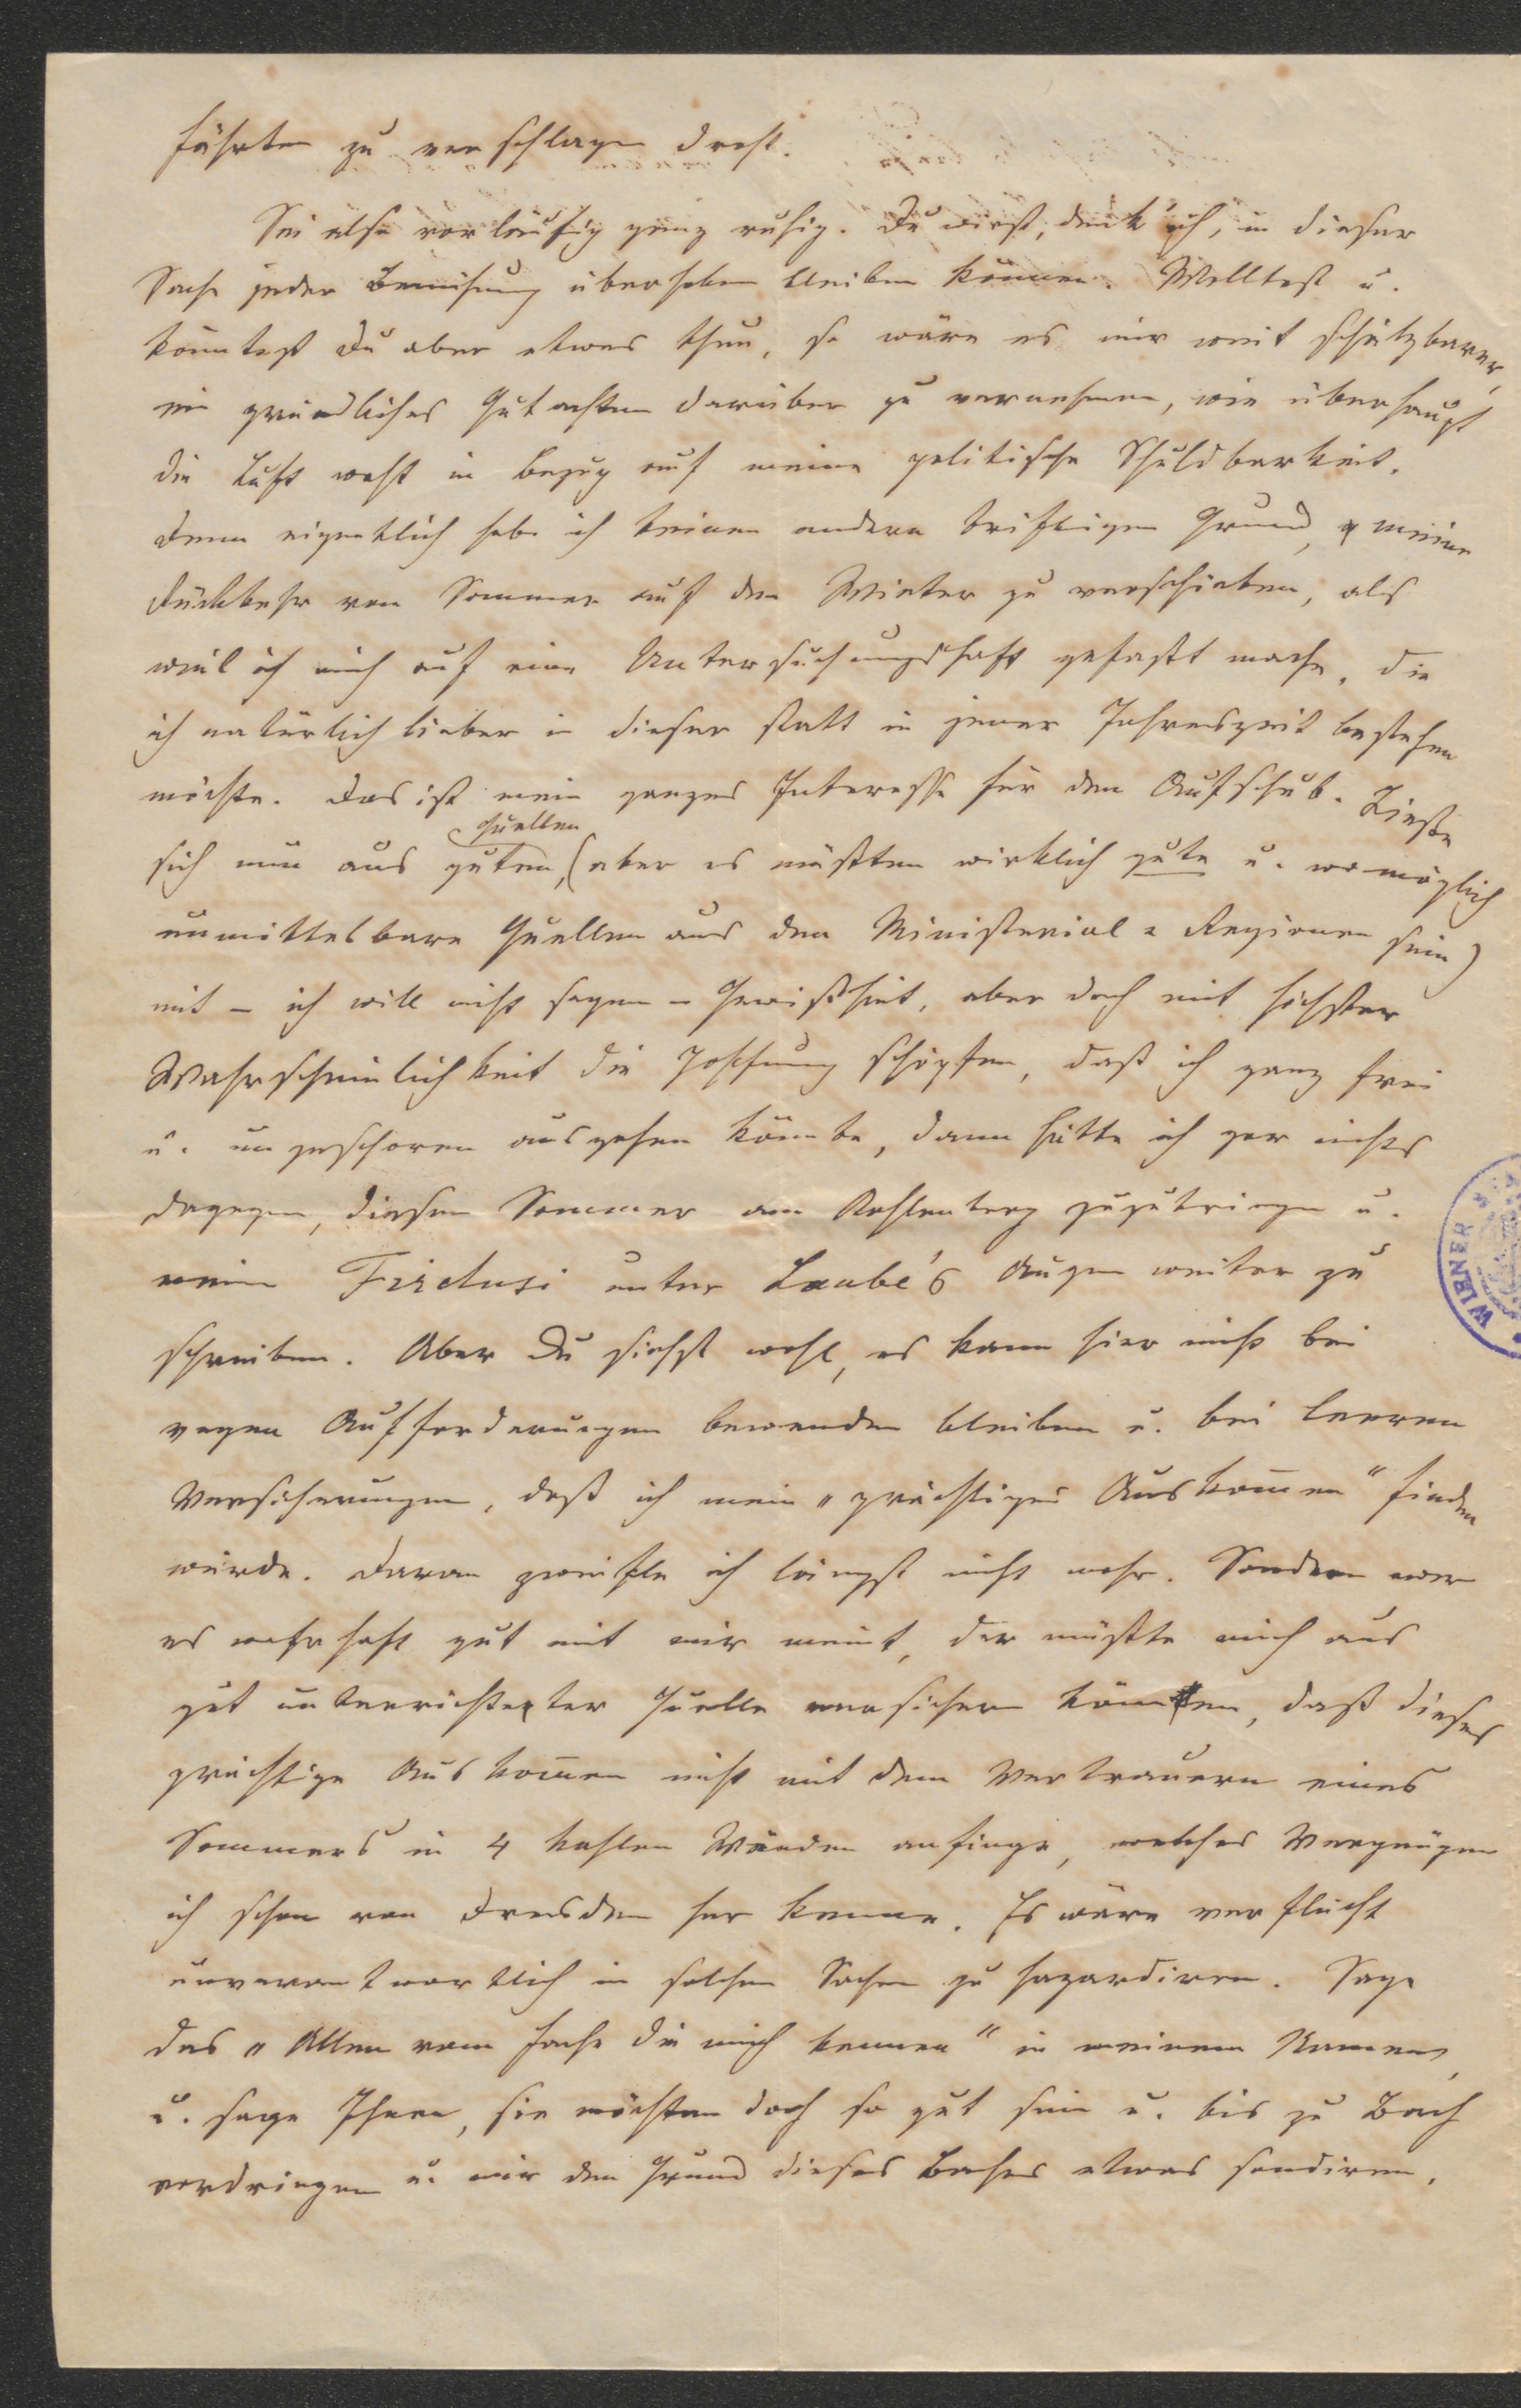 fährten zu verschlagen droht.
Sei also vorläufig ganz ruhig. Du wirst, denk' ich, in dieser
Sache jeder Bemühung überhoben bleiben können. Wolltest u.
könntest Du aber etwas thun, so wäre es mir weit schätzbarer,
ein gründliches Gutachten darüber zu vernehmen, wie überhaupt
die Luft weht in Bezug auf meine politische Schuldbarkeit.
Denn eigentlich habe ich keinen andern triftigen Grund, meine
Rückkehr vom Sommer auf den Winter zu verschieben, als
weil ich mich auf eine Untersuchungshaft gefaßt mache, die
ich natürlich lieber in dieser statt in jener Jahreszeit bestehen
möchte. Das ist mein ganzes Interesse für den Aufschub. Ließe
sich nun aus guten Quellen, (aber es müßten wirklich gute u. wo möglich
unmittelbare Quellen aus den Ministerial-Regionen sein)
mit – ich will nicht sagen – Gewißheit, aber doch mit höchster
Wahrscheinlichkeit die Hoffnung schöpfen, daß ich ganz frei
u. ungeschoren ausgehen könnte, dann hätte ich gar nichts
dagegen, diesen Sommer am Kahlenberg zuzubringen u.
mein Firdusi unter Laube's Augen weiter zu
schreiben. Aber Du siehst wohl, es kann hier nicht bei
vagen Aufforderungen bewenden bleiben u. bei leeren
Versicherungen, daß ich mein „prächtiges Auskom̄en" finden
würde. Daran zweifle ich längst nicht mehr. Sondern wer
es wahrhaft gut mit mir meint, der müßte mich aus
gut unterrichteter Quelle versichern können, daß dieses
prächtige Auskom̄en nicht mit dem Vertrauern eines
Sommers in 4 kahlen Wänden anfinge, welches Vergnügen
ich schon von Dresden her kenne. Es wäre verflucht
unverantwortlich in solchen Sachen zu hazardiren. Sage
das „Allen vom Fache die mich kennen" in meinem Namen,
u. sage Ihnen, sie möchten doch so gut sein u. bis zu Bach
vordringen u. mir den Grund dieses Baches etwas sondiren.
WIENER